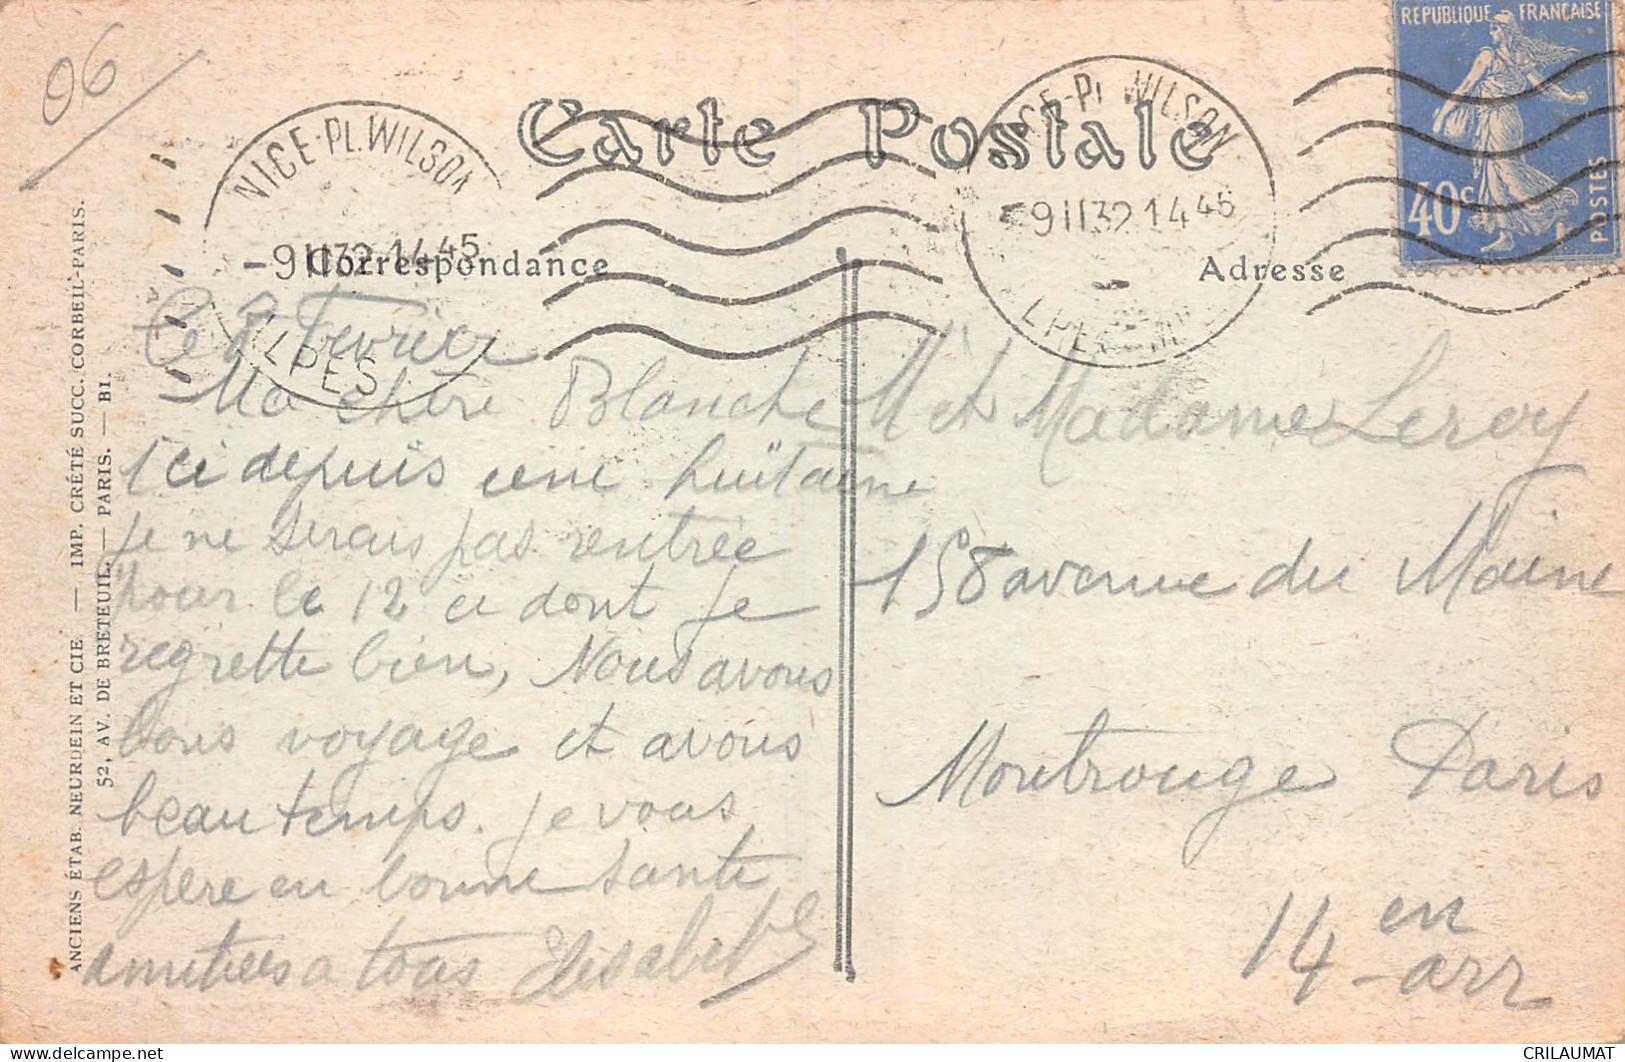 06
RÉPUBLIQUE FRANÇAISE
40c
POSTES
NICE-PL. WILSON
-9 II 32 14 45
ALPES
NICE-PL WILSON
-9 II 32 14 45
ALPES
Carte Postale
Correspondance
Adresse
ANCIENS ÉTAB. NEURDEIN ET CIE — IMP. CRÉTÉ SUCC. CORBEIL-PARIS.
52, AV. DE BRETEUIL. — PARIS. — B1.
Ce 8 Fevrier
Ma chère Blanche
Ici depuis une huitaine
je ne serais pas rentrée
pour le 12 ce dont je
regrette bien, Nous avons
bons voyage et avons
beau temps. je vous
espère en bonne sante
amities a tous Elisabeth
Mr et Madame Leroy
158 avenue du Maine
Montrouge Paris
14 en
arr
CRILAUMAT